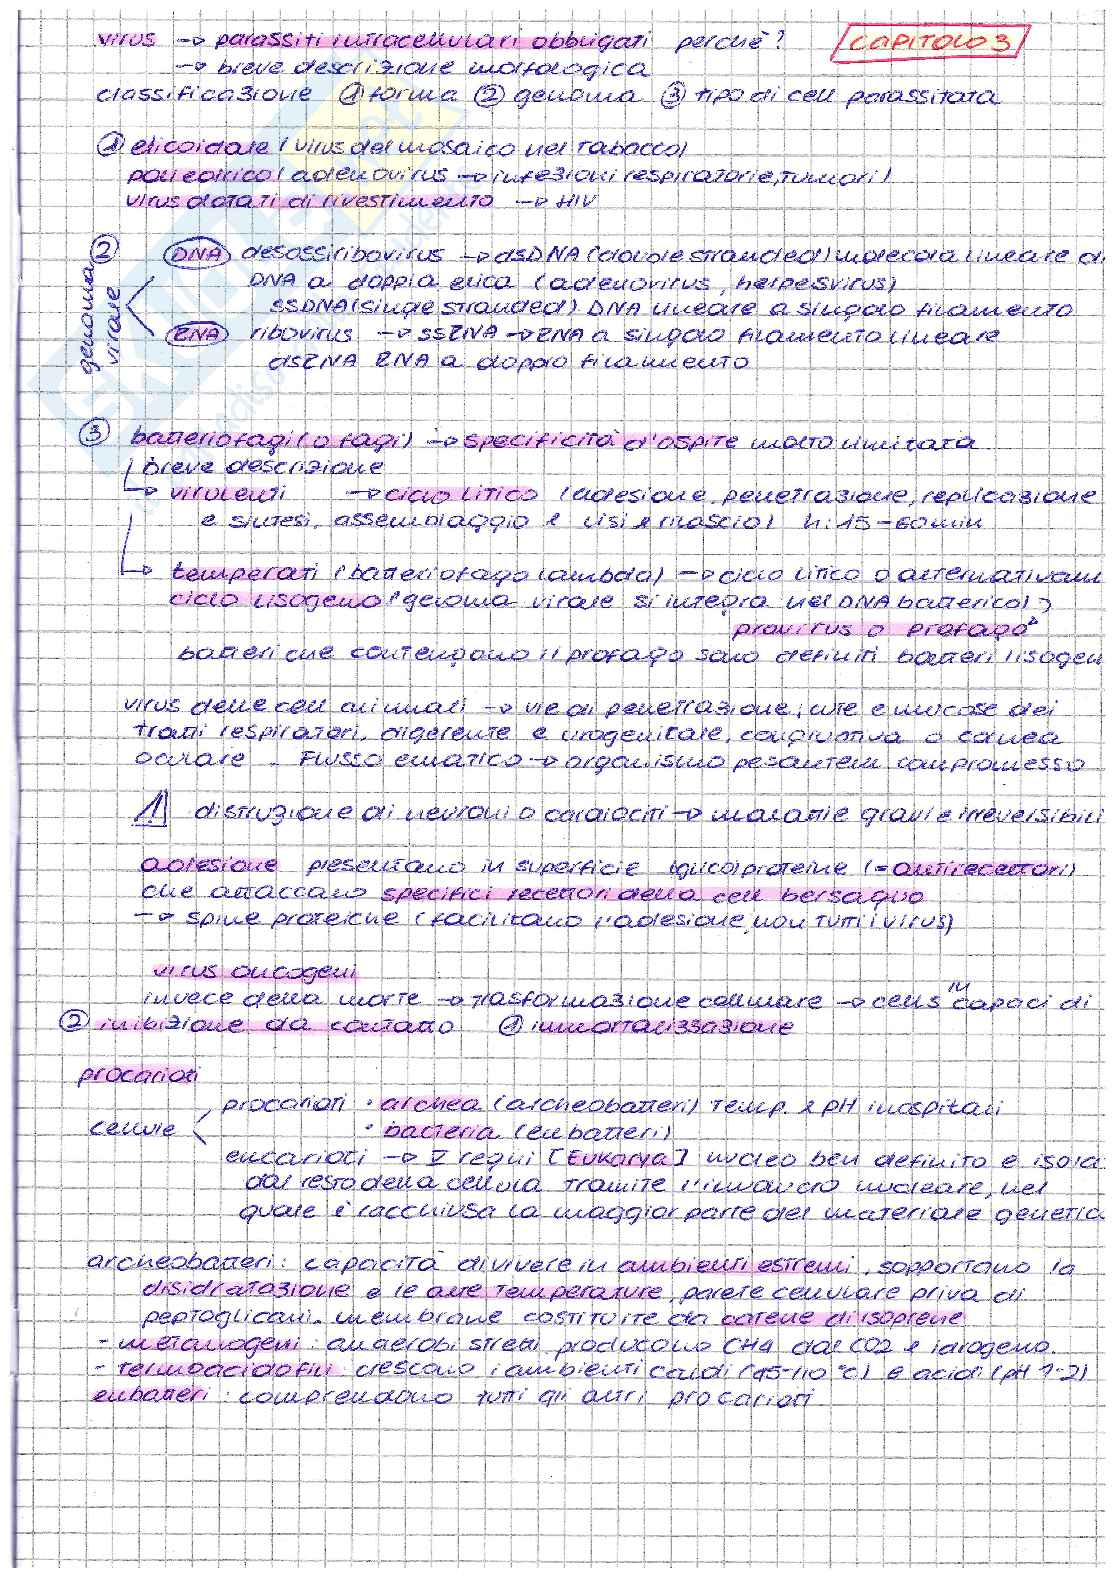 virus → parassiti intracellulari obbligati perchè? CAPITOLO 3
→ breve descrizione morfologica
classificazione ① forma ② genoma ③ tipo di cell parassitata
① elicoidale (virus del mosaico nel tabacco)
poliedrico (adenovirus → infezioni respiratorie, tumori)
virus dotati di rivestimento → HIV
② genoma virale
DNA desossiribovirus → dsDNA (double stranded) molecola lineare di
DNA a doppia elica (adenovirus, herpesvirus)
SSDNA (single stranded) DNA lineare a singolo filamento
RNA ribovirus → ssRNA → RNA a singolo filamento lineare
dsRNA RNA a doppio filamento
③ batteriofagi (o fagi) → specificità d'ospite molto limitata
breve descrizione
→ virulenti → ciclo litico (adesione, penetrazione, replicazione
e sintesi, assemblaggio e lisi e rilascio) h: 15-60min
→ temperati (batteriofago lambda) → ciclo litico o alternativam
ciclo lisogeno (genoma virale si integra nel DNA batterico) →
provirus o profago
batteri che contengono il profago sono definiti batteri lisogen
virus delle cell animali → vie di penetrazione: cute e mucose dei
tratti respiratori, digerente e urogenitale, congiuntiva o cornea
oculare. Flusso ematico → organismo pesantem compromesso
! distruzione di neuroni o cardiociti → malattie gravi e irreversibili
adesione presentano in superficie (glico)proteine (= antirecettori)
che attaccano specifici recettori della cell bersaglio
→ spine proteiche (facilitano l'adesione, non tutti i virus)
virus oncogeni
invece della morte → trasformazione cellulare → cells IN capaci di
② inibizione da contatto ① immortalizzazione
procarioti
cellule
procarioti • archea (archeobatteri) temp. e pH inospitali
• bacteria (eubatteri)
eucarioti → V regni [Eukarya] nucleo ben definito e isola
dal resto della cellula tramite l'involucro nucleare, nel
quale è racchiusa la maggior parte del materiale genetic
archeobatteri: capacità di vivere in ambienti estremi, sopportano la
disidratazione e le alte temperature, parete cellulare priva di
peptoglicani. membrane costituite da catene di isoprene
- metanogeni: anaerobi stretti producono CH4 dal CO2 e idrogeno.
- termoacidofili crescono i ambienti caldi (45-110 °C) e acidi (pH 1-2)
eubatteri: comprendono tutti gli altri procarioti